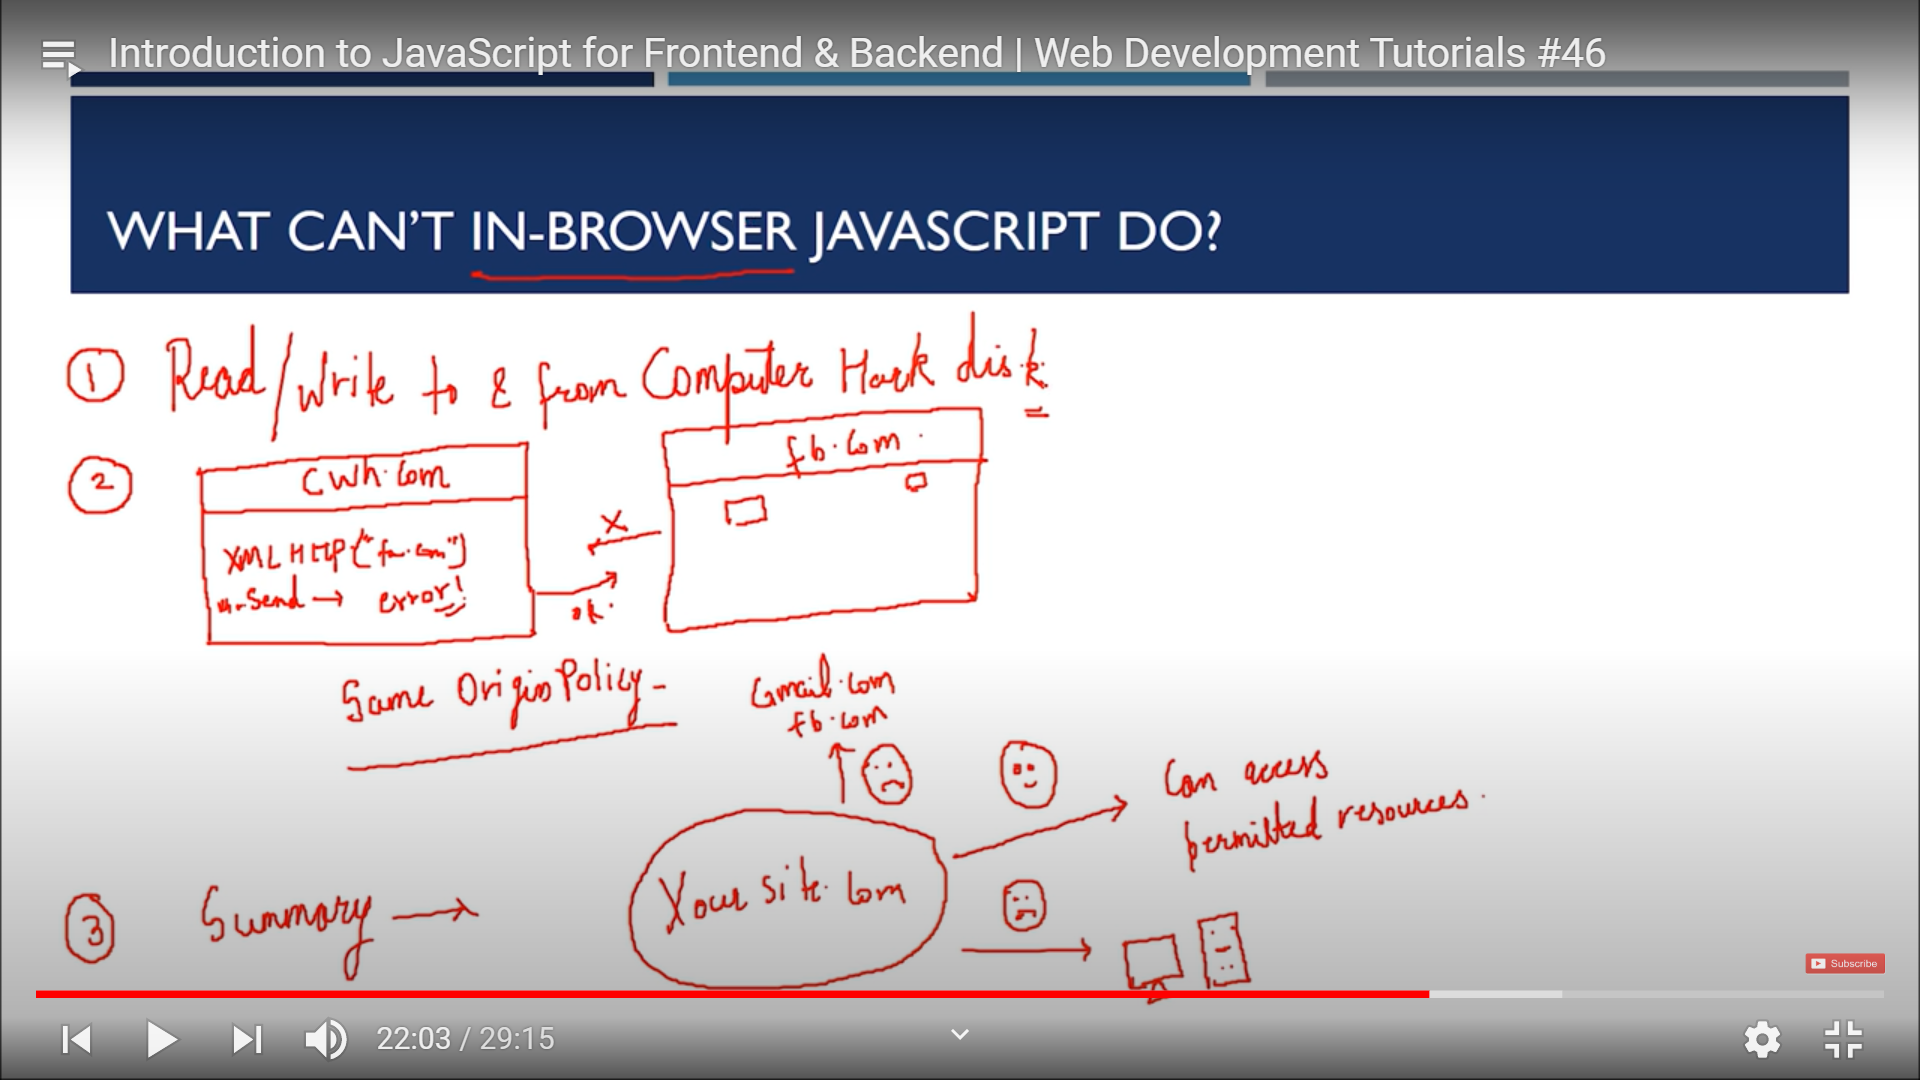 Introduction to JavaScript for Frontend & Backend | Web Development Tutorials #46
WHAT CAN'T IN-BROWSER JAVASCRIPT DO?
1 Read/Write to & from Computer Hark disk
2
cwh.com
XMLHTTP("fa.com")
Send → error!
X
ok.
fb.com
Same Origin Policy
Gmail.com
fb.com
Can access
permitted resources.
3 Summary →
Your site.com
Subscribe
22:03 / 29:15